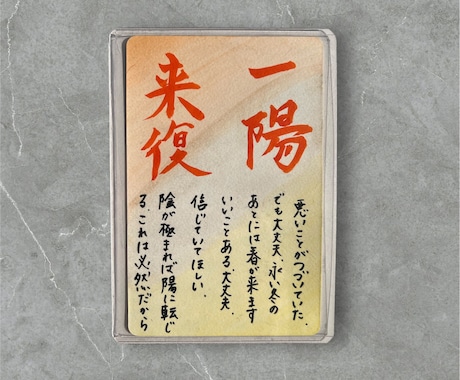 一陽
来復
悪いことがつづいていた、
でも大丈夫、永い冬の
あとには春が来ます
いいことある、大丈夫、
信じていてほしい、
陰が極まれば陽に転じ
る、これは必然だから